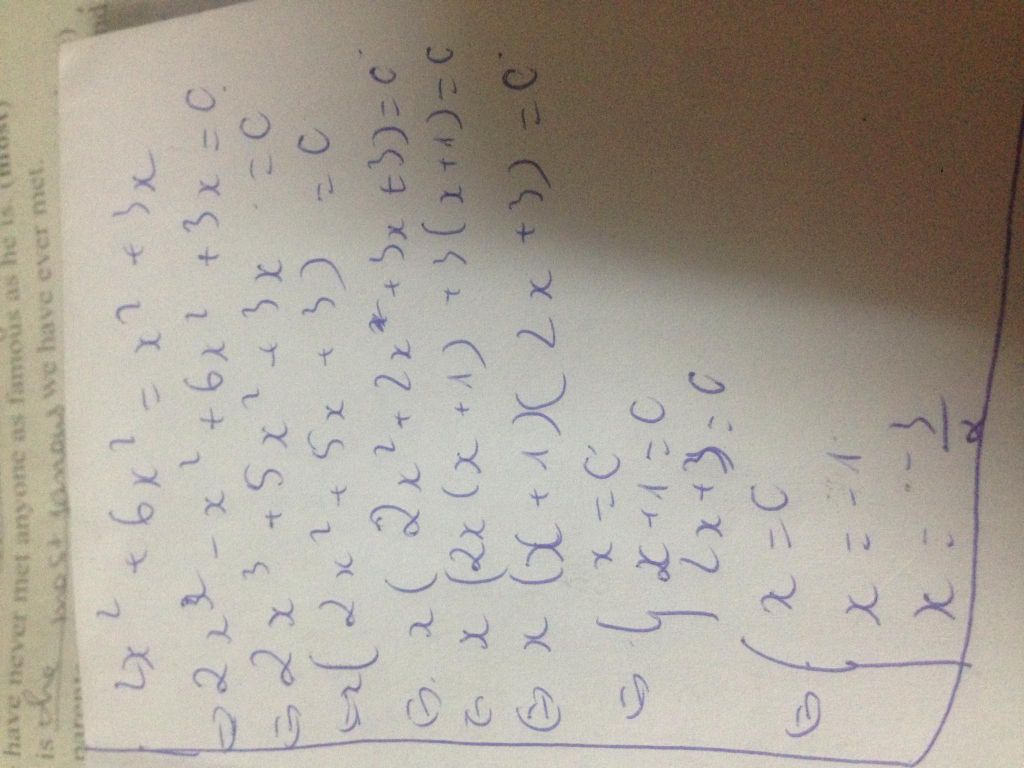 have never met anyone as famous as he is (most)
is the best tanow we have ever met.
2x² + 6x² = x² + 3x
⇒ 2x³ - x² + 6x² + 3x = 0
⇒ 2x³ + 5x² + 3x = 0
⇒ x(2x² + 5x + 3) = 0
⇔ x(2x² + 2x + 3x + 3) = 0
⇔ x(2x(x + 1) + 3(x + 1) = 0
⇔ x(x + 1)(2x + 3) = 0
⇔ { x = 0
x + 1 = 0
2x + 3 = 0
⇔ { x = 0
x = -1
x = -3/2